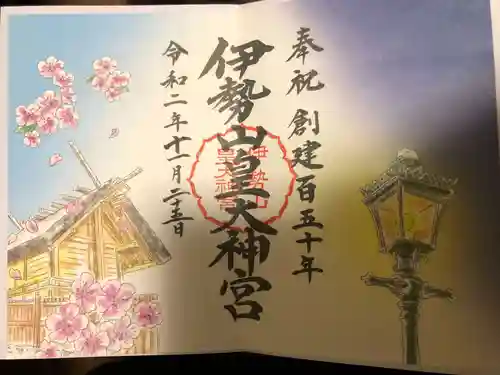 奉祝 創建百五十年
伊勢山皇大神宮
令和二年十一月二十五日
伊勢山
皇大神宮